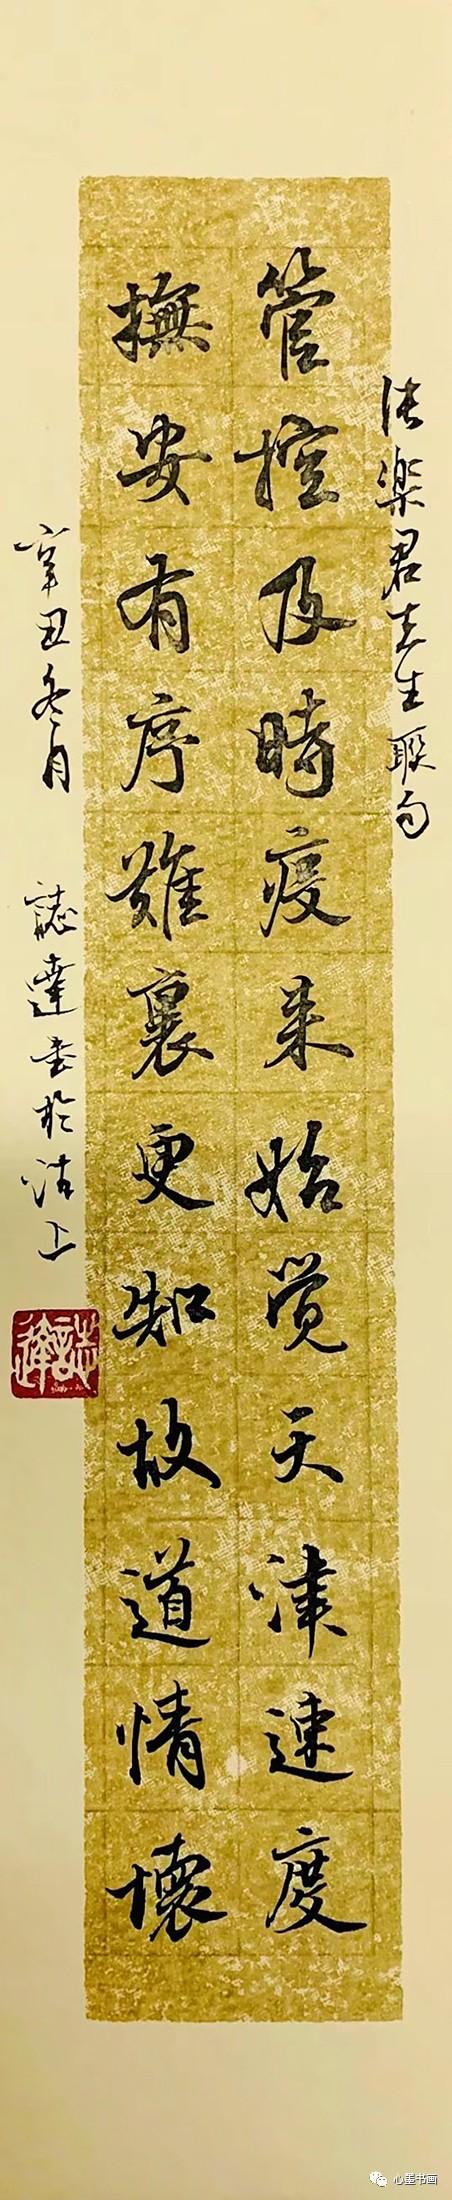 张楽君先生聯句
管控及時疫来始觉天津速度
撫安有序難裏更知故道情壞
辛丑冬月 誌達书於沽上
誌達
心墨书画